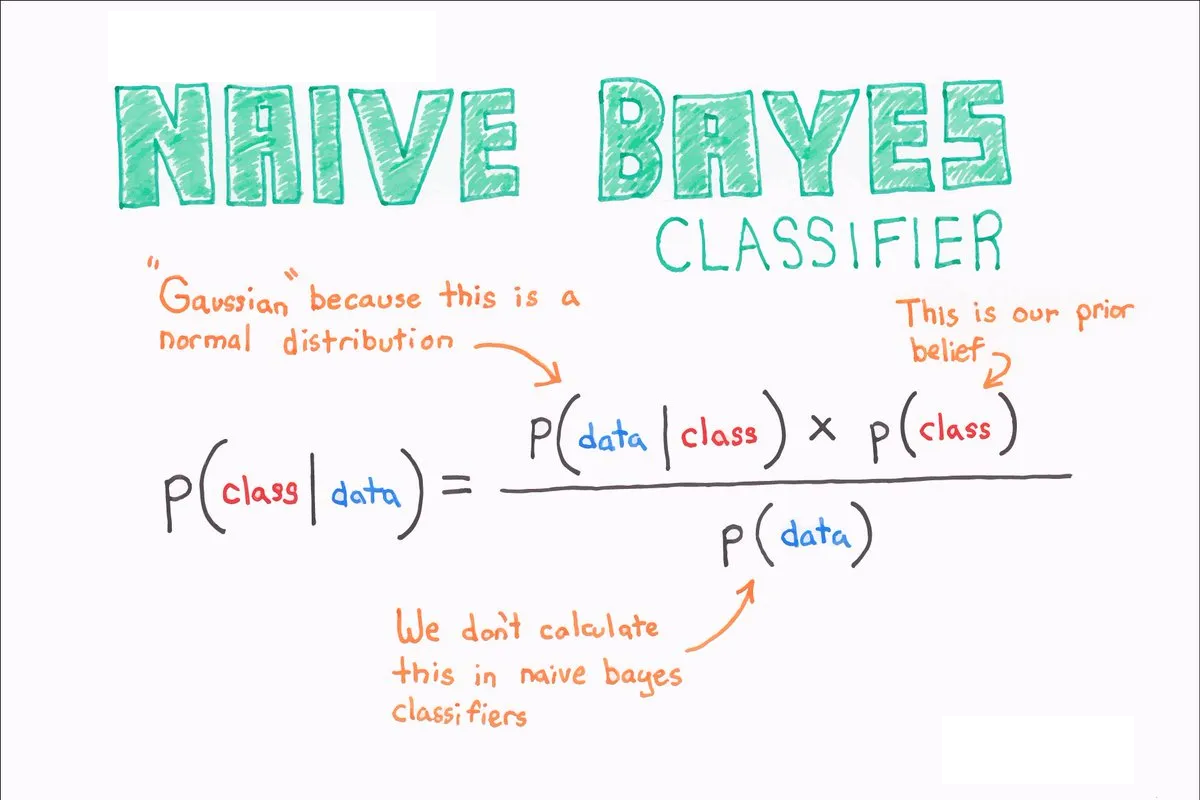 NAIVE BAYES
CLASSIFIER
"Gaussian" because this is a
normal distribution
This is our prior
belief
P(data | class) × P(class)
P(class | data) =
P(data)
We don't calculate
this in naive bayes
classifiers